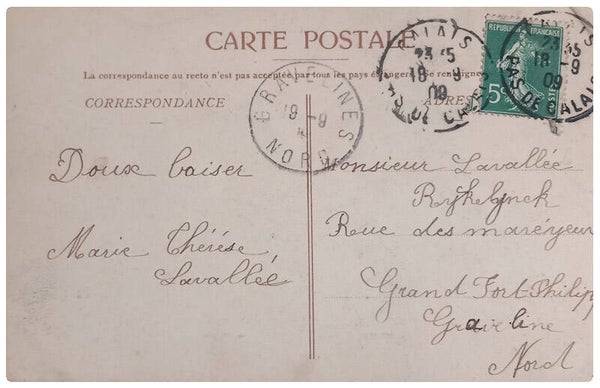 CARTE POSTALE
La correspondance au recto n'est pas acceptée par tous les pays étrangers. Se renseigner
CORRESPONDANCE
ADRES
GRAVELINES
19 -9
NORD
CALAIS
23 35
18 -9
09
PAS DE CALAIS
REPUBLIQUE FRANÇAISE
5c
CALAIS
23 35
18 -9
09
PAS DE CALAIS
Doux baiser
Marie Thérèse
Lavallée
Monsieur Lavallée
Rykelynck
Rue des maréyeur
Grand Fort Philipp
Graveline
Nord